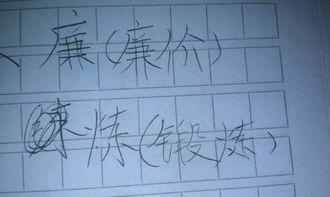 、廉(廉价)
炼(锻炼)